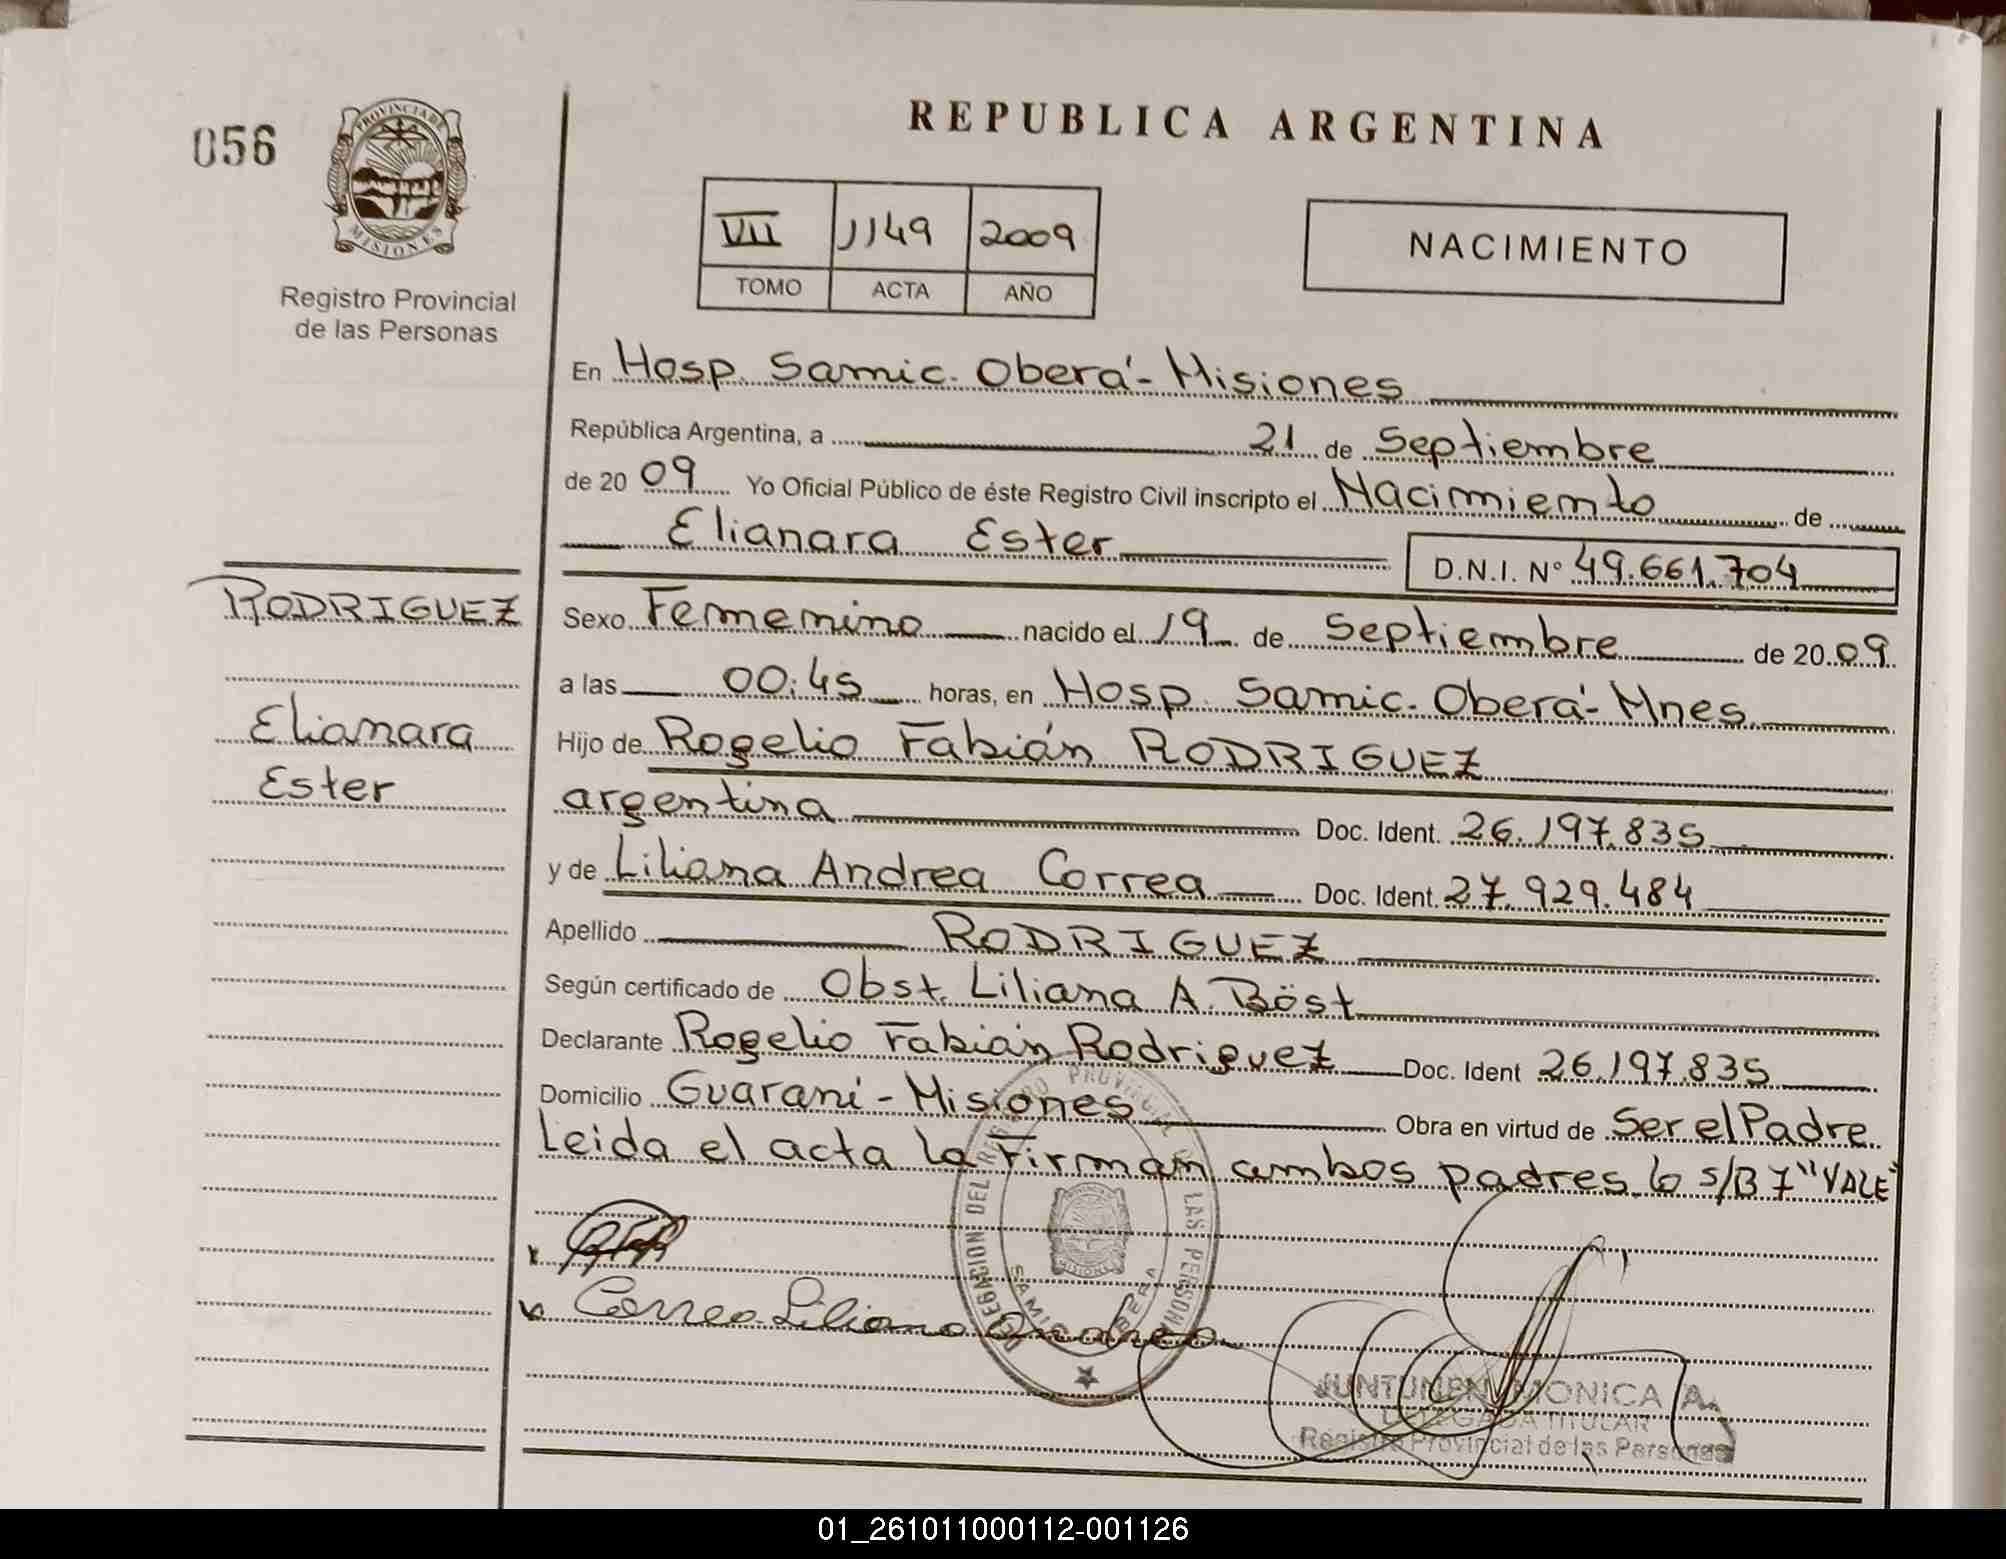 056
PROVINCIA DE
MISIONES
Registro Provincial
de las Personas
REPUBLICA ARGENTINA
VII 1149 2009
TOMO ACTA AÑO
NACIMIENTO
En Hosp. Samic. Oberá - Misiones
República Argentina, a 21 de Septiembre
de 2009 Yo Oficial Público de éste Registro Civil inscripto el Nacimiento de
Elianara Ester D.N.I. N° 49.661.704
RODRIGUEZ
Elianara
Ester
Sexo Femenino nacido el 19 de Septiembre de 2009
a las 00:45 horas, en Hosp. Samic. Oberá - Mnes
Hijo de Rogelio Fabián RODRIGUEZ
argentina Doc. Ident. 26.197.835
y de Liliana Andrea Correa Doc. Ident. 27.929.484
Apellido RODRIGUEZ
Según certificado de Obst. Liliana A. Böst
Declarante Rogelio Fabián Rodriguez Doc. Ident 26.197.835
Domicilio Guaraní - Misiones Obra en virtud de Ser el Padre
Leida el acta la Firman ambos padres. lo s/B 7 "VALE"
Correa Liliana Andrea
DELEGACION DEL REGISTRO PROVINCIAL DE LAS PERSONAS
SAMIC OBERA
MISIONES
JUNTUNEN MONICA A.
DELEGADA TITULAR
Registro Provincial de las Personas
01_261011000112-001126